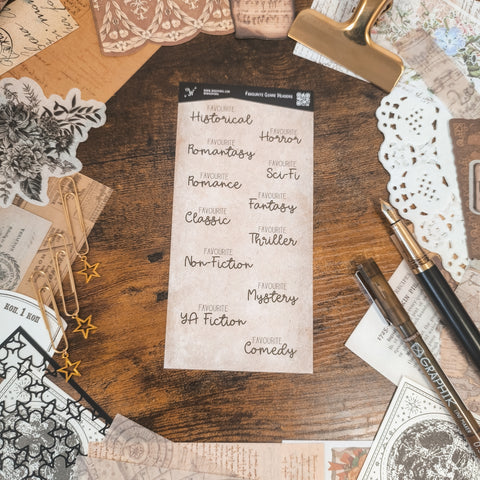 FAVOURITE GENRE HEADERS
FAVOURITE
Historical
FAVOURITE
Horror
FAVOURITE
Romantasy
FAVOURITE
Sci-Fi
FAVOURITE
Romance
FAVOURITE
Fantasy
FAVOURITE
Classic
FAVOURITE
Thriller
FAVOURITE
Non-Fiction
FAVOURITE
Mystery
FAVOURITE
YA Fiction
FAVOURITE
Comedy
GRAPHIK